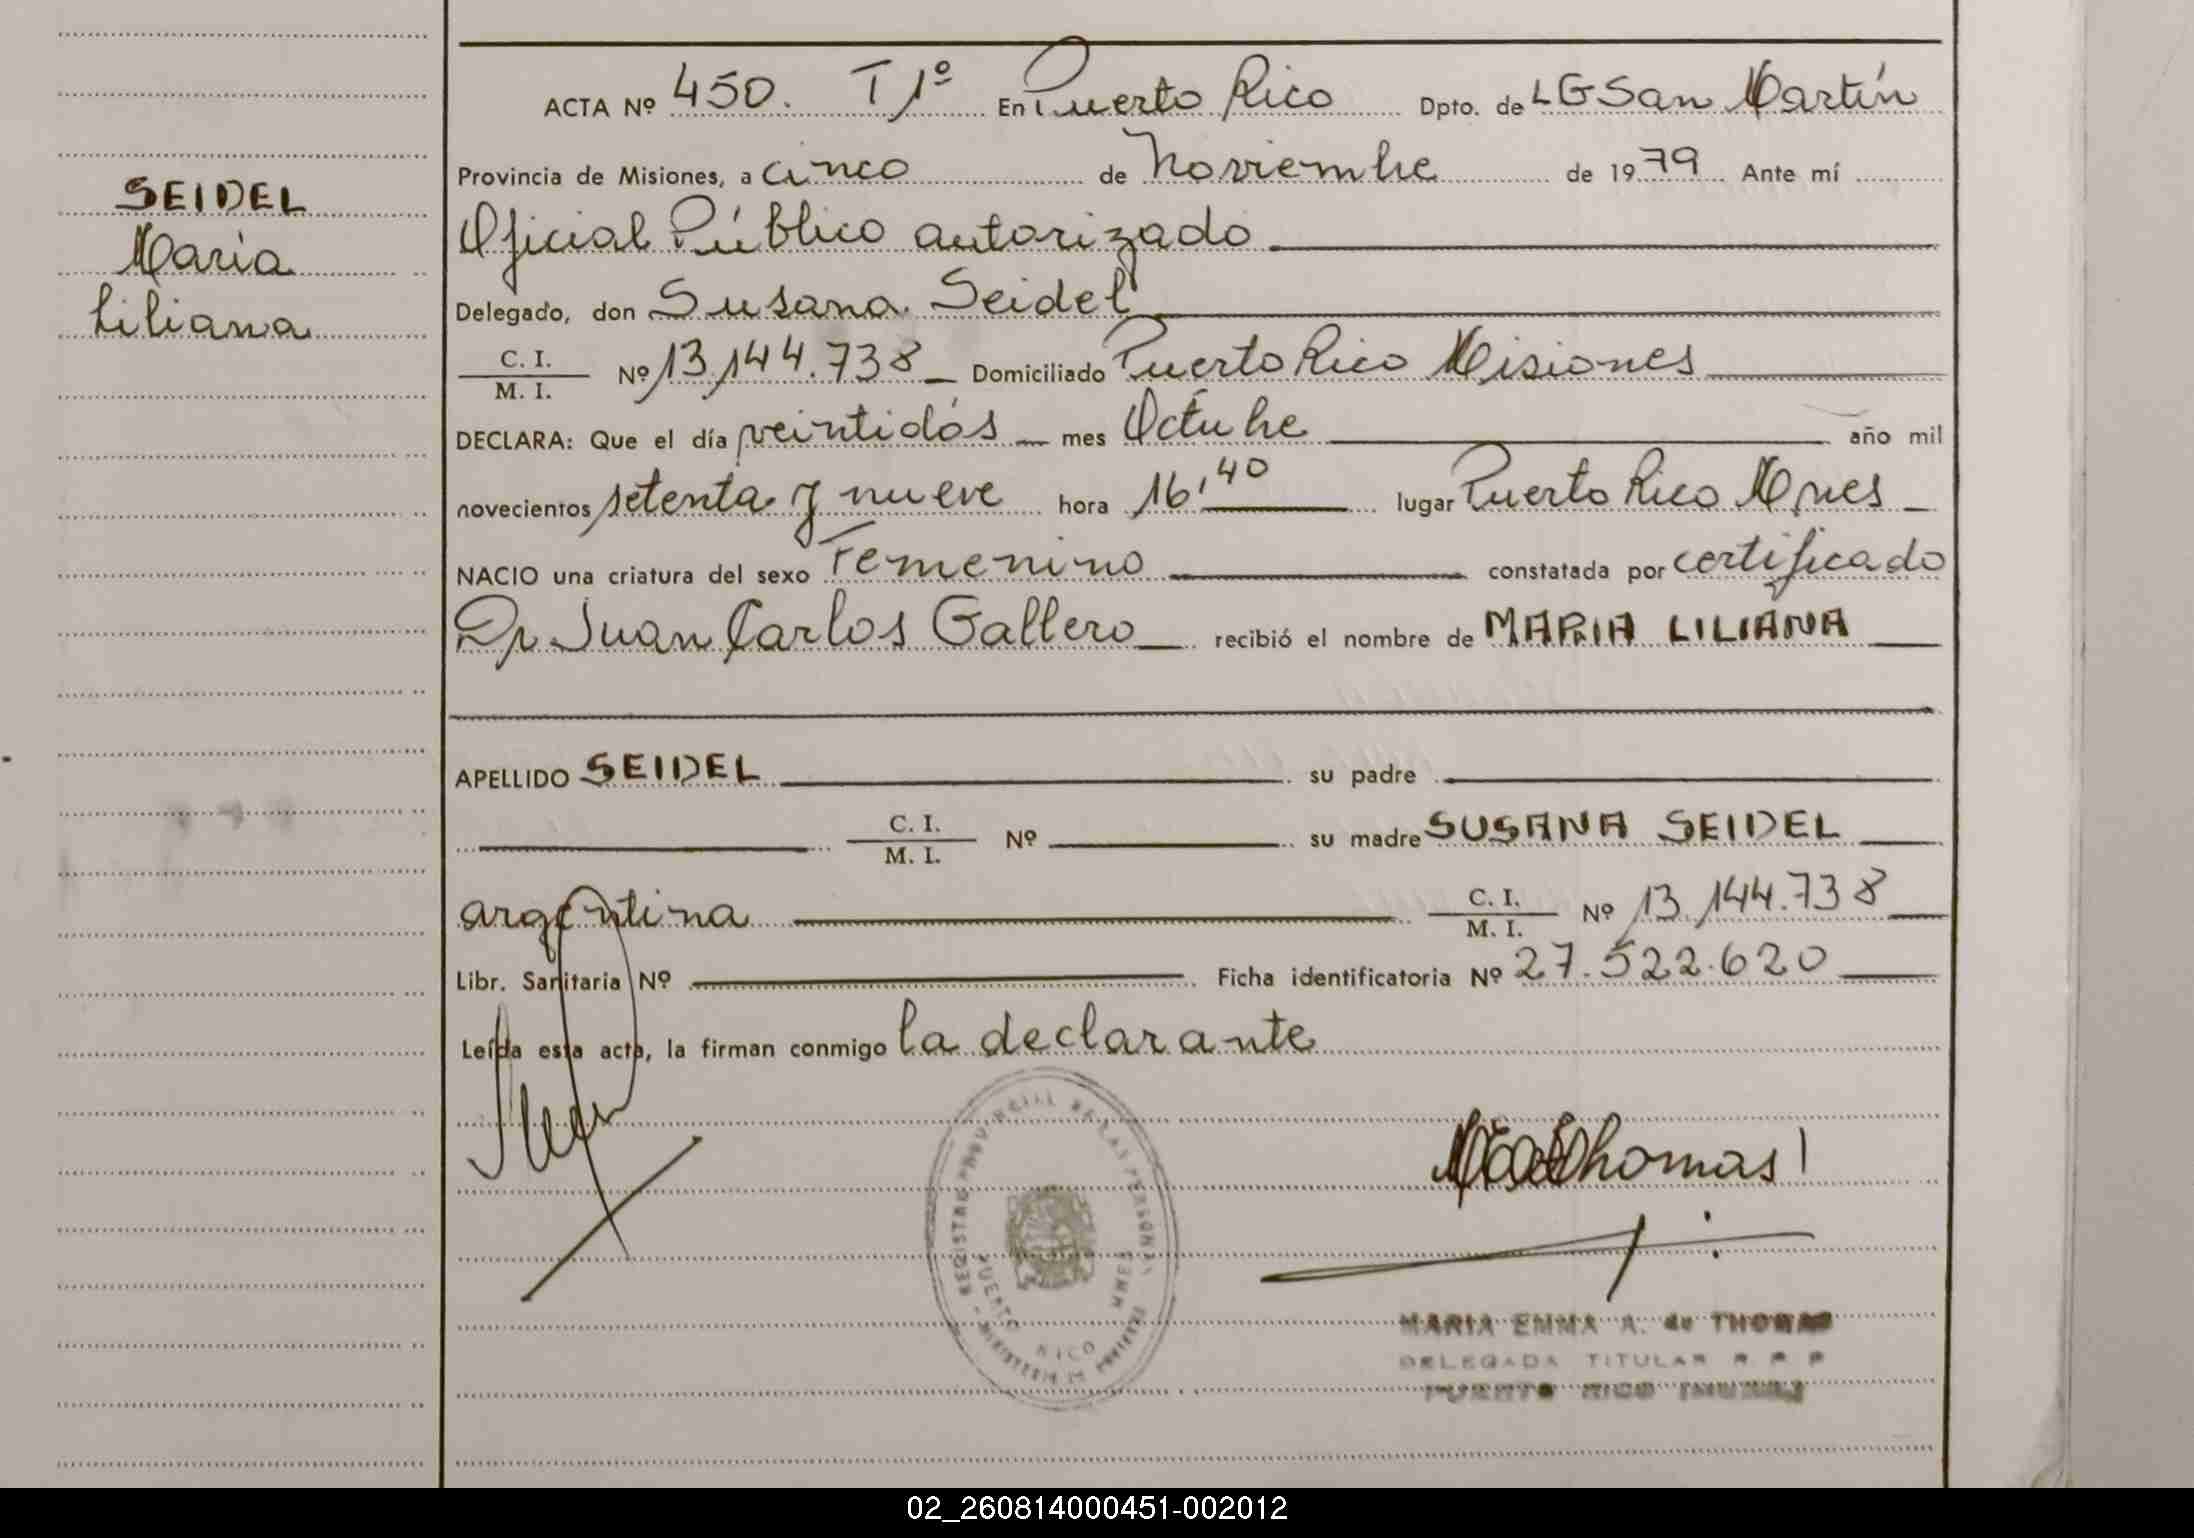 SEIDEL
María
Liliana
ACTA Nº 450. T 1º En Puerto Rico Dpto. de LGSan Martín
Provincia de Misiones, a cinco de Noviembre de 1979 Ante mí
Oficial Público autorizado
Delegado, don Susana Seidel
C. I. / M. I. Nº 13,144.738 Domiciliado Puerto Rico Misiones
DECLARA: Que el día veintidós mes Octubre año mil
novecientos setenta y nueve hora 16,40 lugar Puerto Rico Mnes
NACIO una criatura del sexo Femenino constatada por certificado
Dr Juan Carlos Gallero recibió el nombre de MARIA LILIANA
APELLIDO SEIDEL su padre
C. I. / M. I. Nº su madre SUSANA SEIDEL
argentina C. I. / M. I. Nº 13.144.738
Libr. Sanitaria Nº Ficha identificatoria Nº 27.522.620
Leída esta acta, la firman conmigo la declarante
REGISTRO PROVINCIAL DE LAS PERSONAS
PUERTO RICO MNES
Thomas
MARIA EMMA A. de THOMAS
DELEGADA TITULAR R P P
PUERTO RICO
02_260814000451-002012